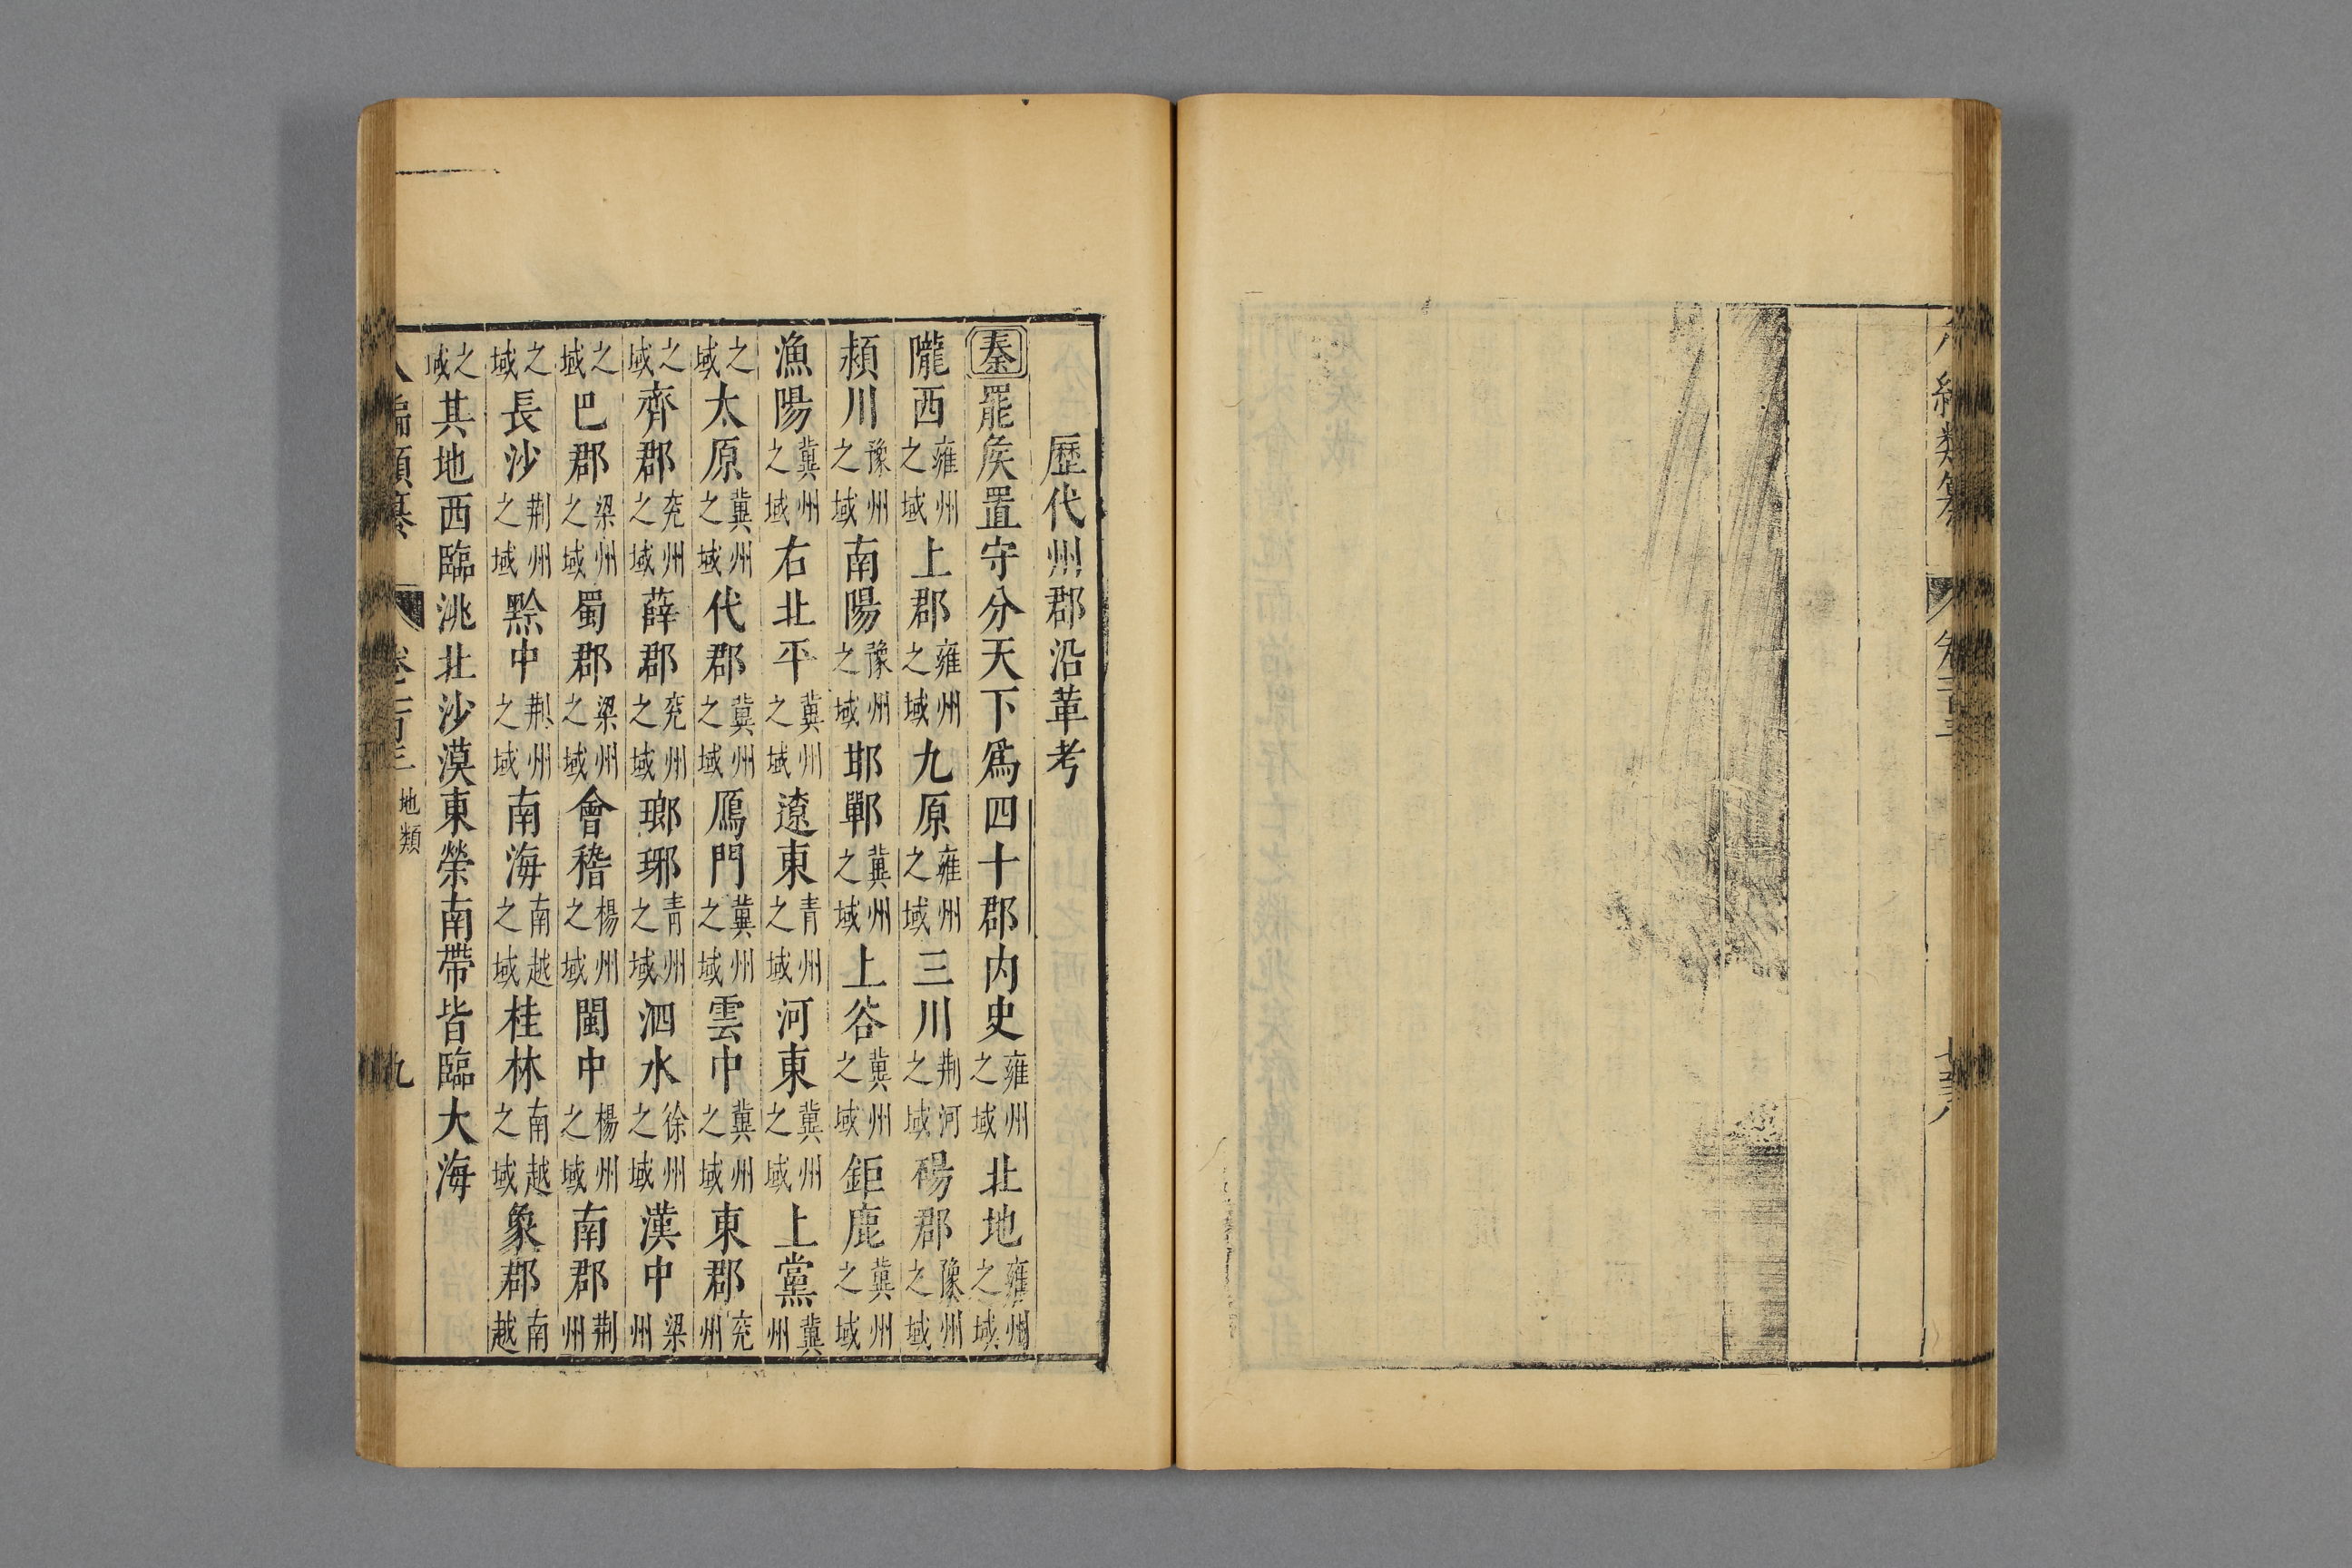 歷代州郡沿革考
秦罷矦置守分天下爲四十郡内史雍州之域北地雍州之域
隴西雍州之域上郡雍州之域九原雍州之域三川荆河之域碭郡豫州之域
頴川豫州之域南陽豫州之域耶鄲冀州之域上谷冀州之域鉅鹿冀州之域
漁陽冀州之域右北平冀州之域遼東青州之域河東冀州之域上黨冀州
之域太原冀州之域代郡冀州之域鴈門冀州之域雲中冀州之域東郡兖州
之域齊郡兖州之域薛郡兖州之域瑯琊青州之域泗水徐州之域漢中梁州
之域巴郡梁州之域蜀郡梁州之域會稽楊州之域閩中楊州之域南郡荆州
之域長沙荆州之域黔中荆州之域南海南越之域桂林南越之域象郡南越
之域其地西臨洮北沙漠東縈南帶皆臨大海
八編類纂 卷一百三 地類 九